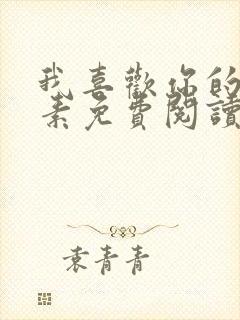 我喜歡你的
素免費閱讀
袁青青